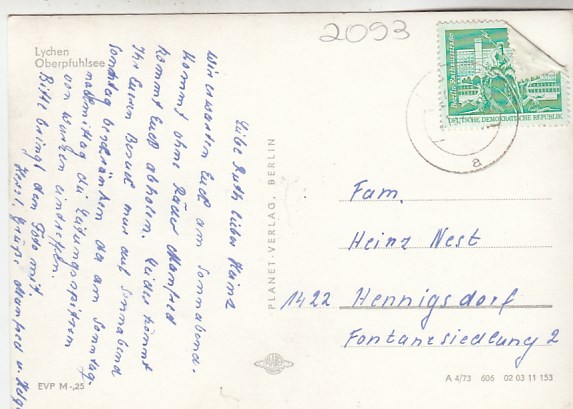 2093
Lychen
Oberpfuhlsee
Berlin, Rathausstraße
DEUTSCHE DEMOKRATISCHE REPUBLIK
Liebe Ruth lieber Heinz
Wir erwarten Euch am Sonnabend.
Kommt ohne Räder Manfred
kommt Euch abholen. Leider könnt
Ihr Euren Besuch nur auf Sonnabend
Sonntag beschränken da am Sonntag-
nachmittag die Zeitungsspitzen
von Wurzen eintreffen.
Bitte bringt den Foto mit.
Herzl. Grüße Manfred u. Helga
PLANET-VERLAG, BERLIN
Fam.
Heinz Nest
1422 Hennigsdorf
Fontanesiedlung 2
a
EVP M -,25
A 4/73 606 02 03 11 153